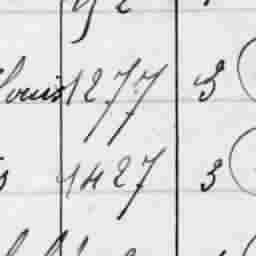 Louis 1277 3
s 1427 3